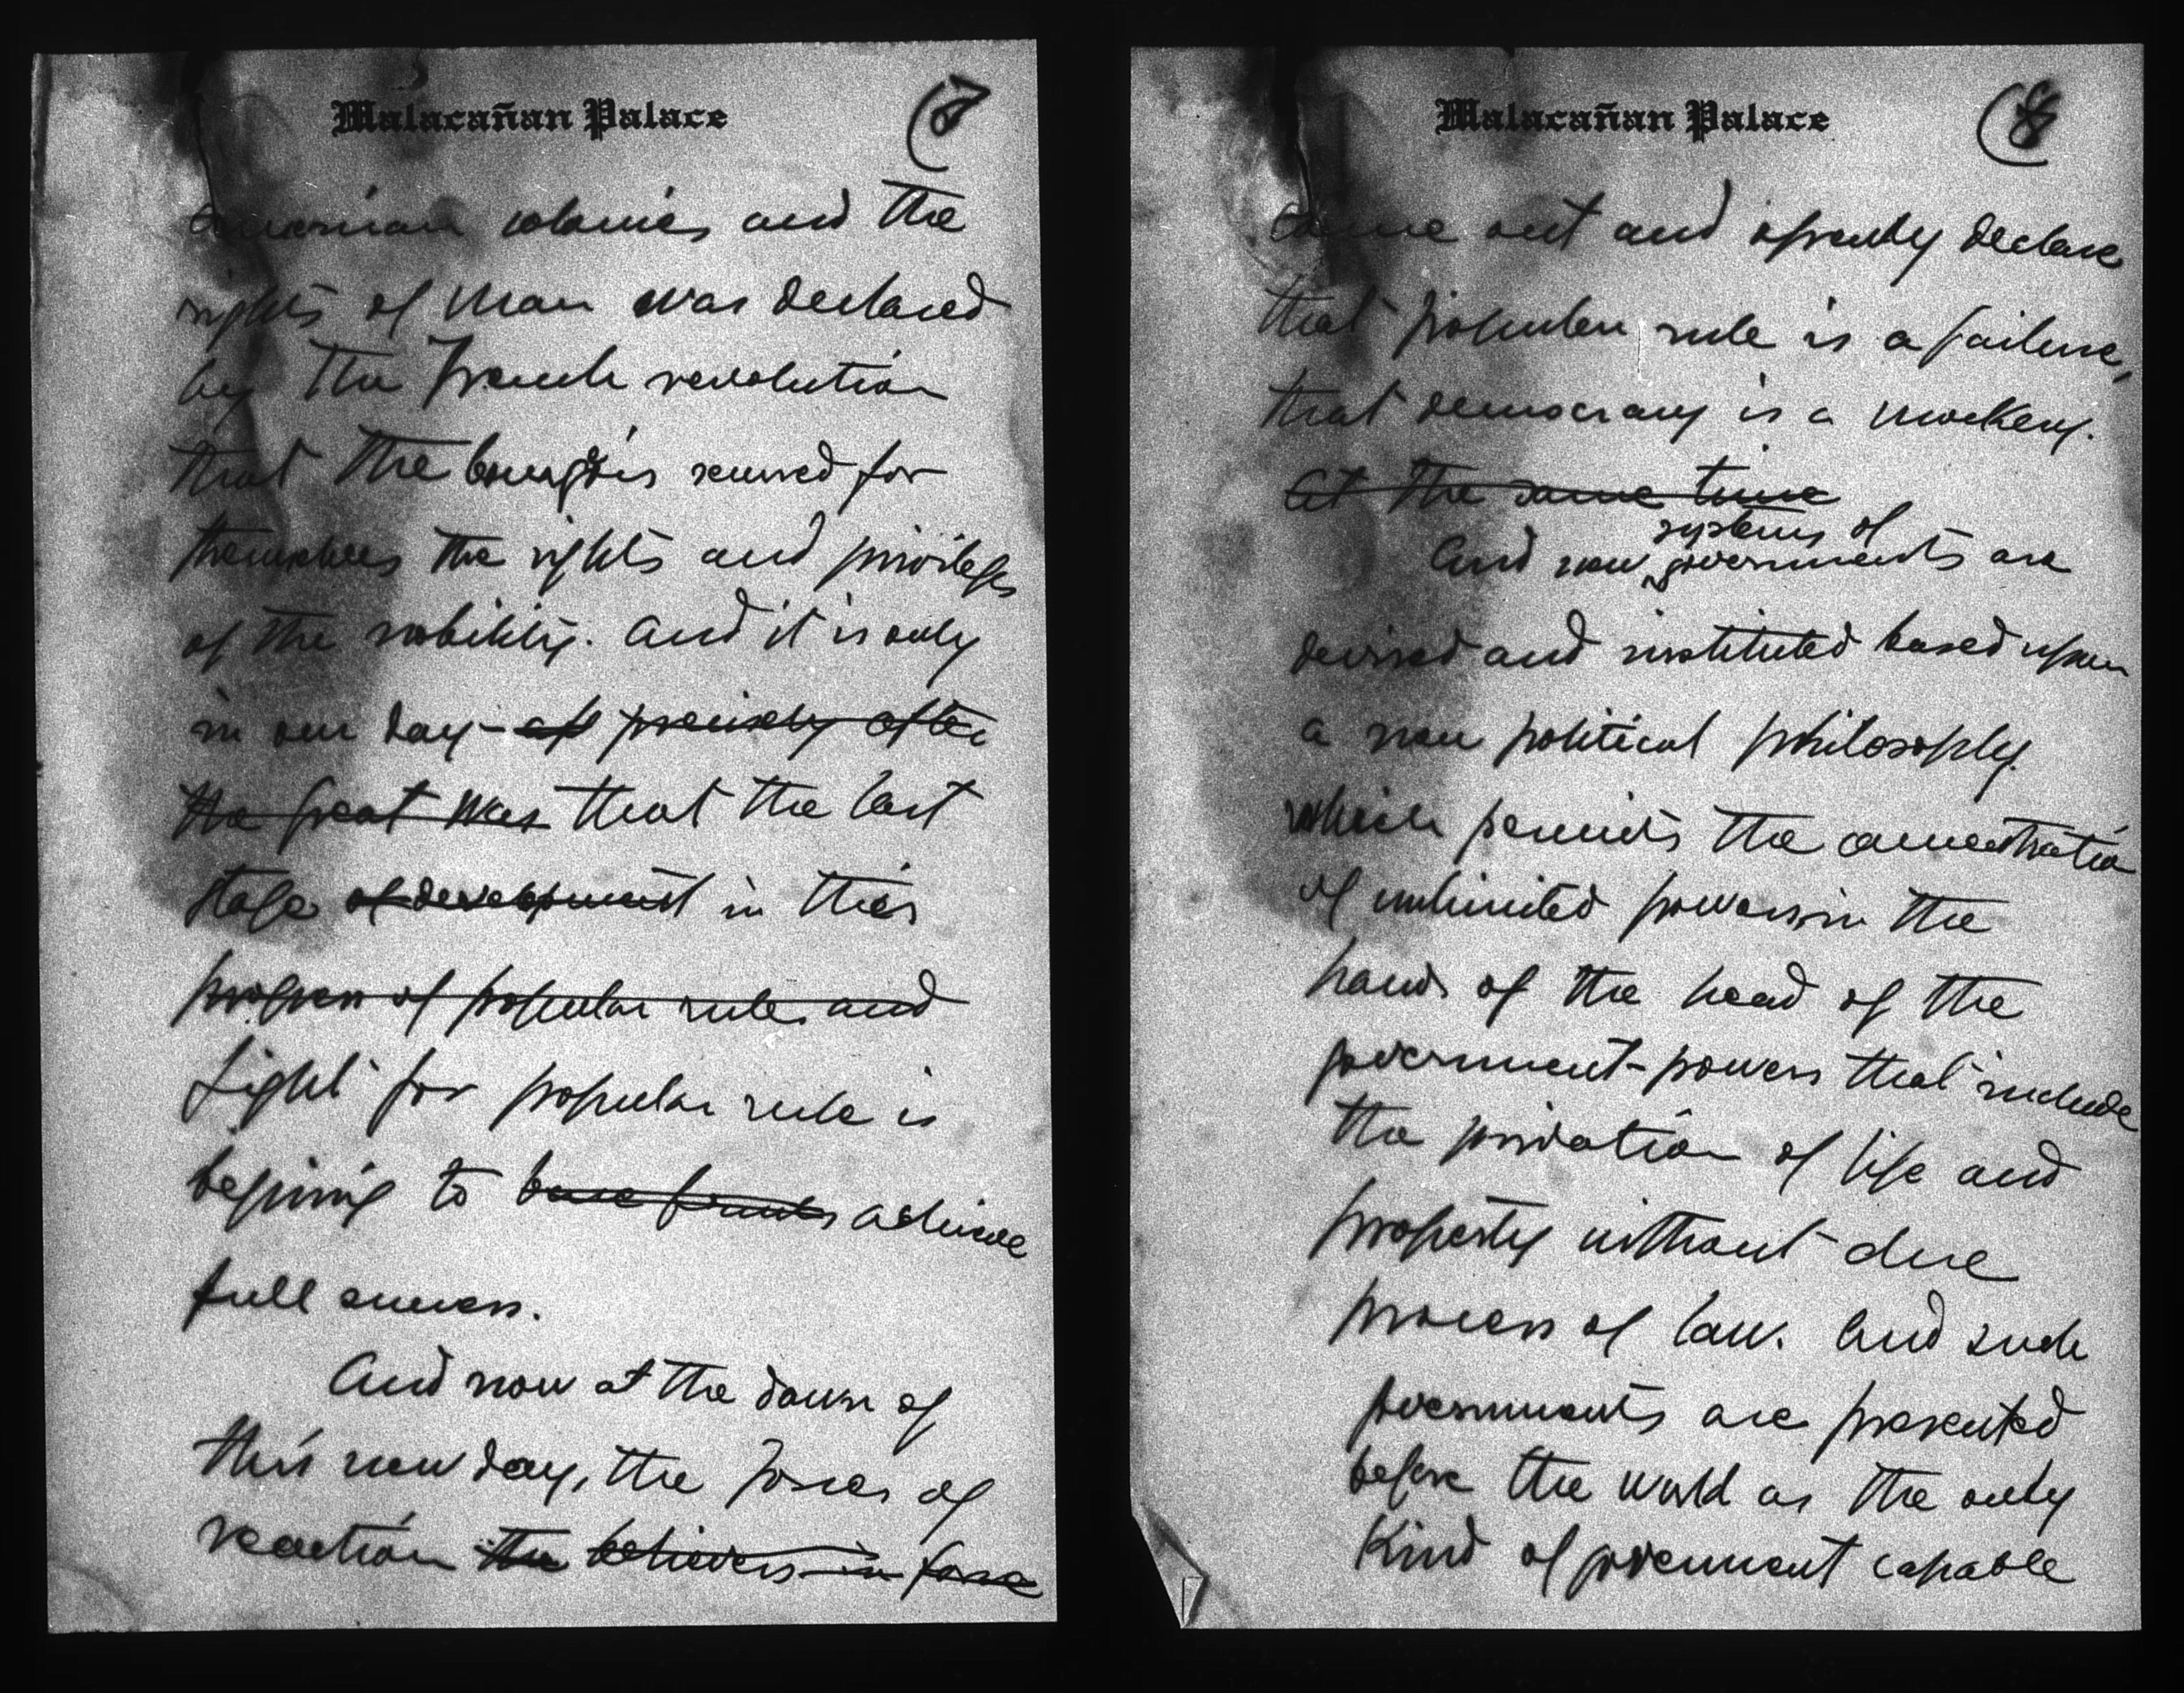 Malacañan Palace
(7
American colonies and the
rights of man was declared
by the French revolution
that the bourgois secured for
themselves the rights and privileges
of the nobility. And it is only
in our day - precisely after
the great was that the last
stage of development in this
progress of popular rule and
fight for popular rule is
begining to bear fruits achieve
full success.
And now at the dawn of
this new day, the forces of
reaction the believers in force
Malacañan Palace
(8
come out and openly declare
that popular rule is a failure,
that democracy is a mockery.
At the same time
systems of
And new governments are
devised and instituted based upon
a new political philosophy.
which permits the concentration
of unlimited powers in the
hands of the head of the
government - powers that include
the privation of life and
property without due
process of law. And such
governments are presented
before the world as the only
kind of government capable